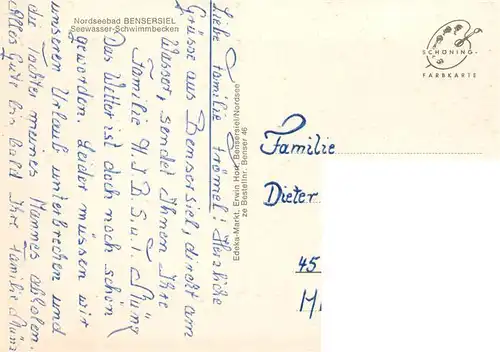 Nordseebad BENSERSIEL
Seewasser-Schwimmbecken
Liebe Familie Frömel! Herzliche
Grüsse aus Bensersiel, direkt am
Wasser, sendet Ihnen Ihre
Familie H. J. B. S. u. I. Münz
Das Wetter ist doch noch schön
geworden. Leider müssen wir
unseren Urlaub unterbrechen und
die Tochter meines Mannes abholen.
Alles Gute bis Bald Ihre Familie Münz
Edeka-Markt, Erwin Host, Bensersiel/Nordsee
ze Bestellnr. Benser 46
SCHÖNING-
FARBKARTE
Familie
Dieter
45